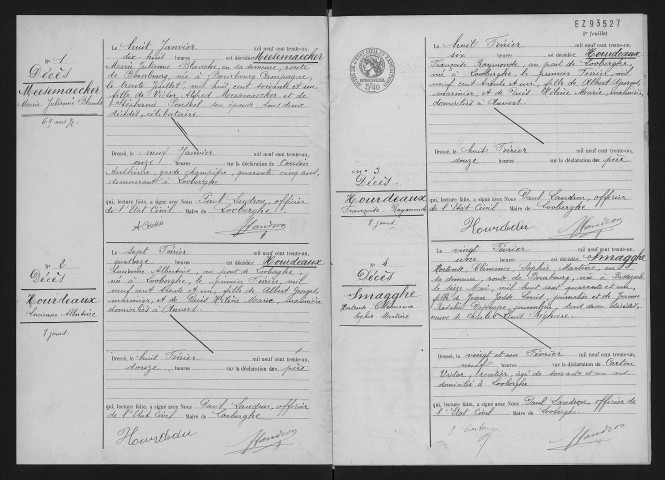 N° 1
Décès
Meesemaecker
Marie Julienne Blanche
69 ans ½
Le huit Janvier mil neuf cent trente-un,
dix huit heures est décédée Meesemaecker
Marie Julienne Blanche en sa demeure, route
de Bourbourg, née à Bourbourg Campagne,
le trente Juillet, mil huit cent soixante et un
fille de Victor Alfred Meesemaecker et de
Stéphanie son épouse, tous deux
décédés, célibataire
Dressé, le neuf Janvier mil neuf cent trente-un,
onze heures sur la déclaration de Cousin
garde champêtre, quarante cinq ans,
demeurant à Looberghe
qui, lecture faite, a signé avec Nous Paul Landron, officier
de l'Etat Civil Maire de Looberghe
Landron
N° 2
Décès
Hourdeaux
Lucienne Albertine
7 jours
Le sept Février mil neuf cent trente-un,
quatorze heures est décédée Hourdeaux
Lucienne Albertine, au pont de Looberghe,
née à Looberghe, le premier Février, mil
neuf cent trente et un, fille de Albert Georges,
marinier, et de Hélène Marie, marinière
domiciliés à Anvers.
Dressé, le huit Février mil neuf cent trente-un,
douze heures sur la déclaration du père
qui, lecture faite, a signé avec Nous Paul Landron, officier
de l'Etat Civil Maire de Looberghe
Hourdeau
Landron
EZ93527
1er feuillet
N° 3
Décès
Hourdeaux
Françoise Raymonde
8 jours
Le huit Février mil neuf cent trente-un,
six heures est décédée Hourdeaux
Françoise Raymonde, au pont de Looberghe,
née à Looberghe, le premier Février, mil
neuf cent trente et un, fille de Albert Georges,
marinier, et de Hélène Marie, marinière,
domiciliés à Anvers.
Dressé, le huit Février mil neuf cent trente-un,
douze heures sur la déclaration du père
qui, lecture faite, a signé avec Nous Paul Landron, officier
de l'Etat Civil Maire de Looberghe
Hourdeau
Landron
N° 4
Décès
Smagghe
Hortense Clémence
Sophie Martine
Le vingt Février mil neuf cent trente-un,
une heures est décédée Smagghe
Hortense Clémence Sophie Martine, en
sa demeure, route de Bourbourg, née à
le seize Mai, mil huit cent quarante et un,
fille de Jean Louis, journalier et de Jeanne
journalière, tous deux décédés,
veuve de Charles Louis
Dressé, le vingt et un Février mil neuf cent trente-un,
neuf heures sur la déclaration de Carton
Victor, rentier, âgé de soixante et un ans
domicilié à Looberghe
qui, lecture faite, a signé avec Nous Paul Landron, officier de
l'Etat Civil Maire de Looberghe
Landron